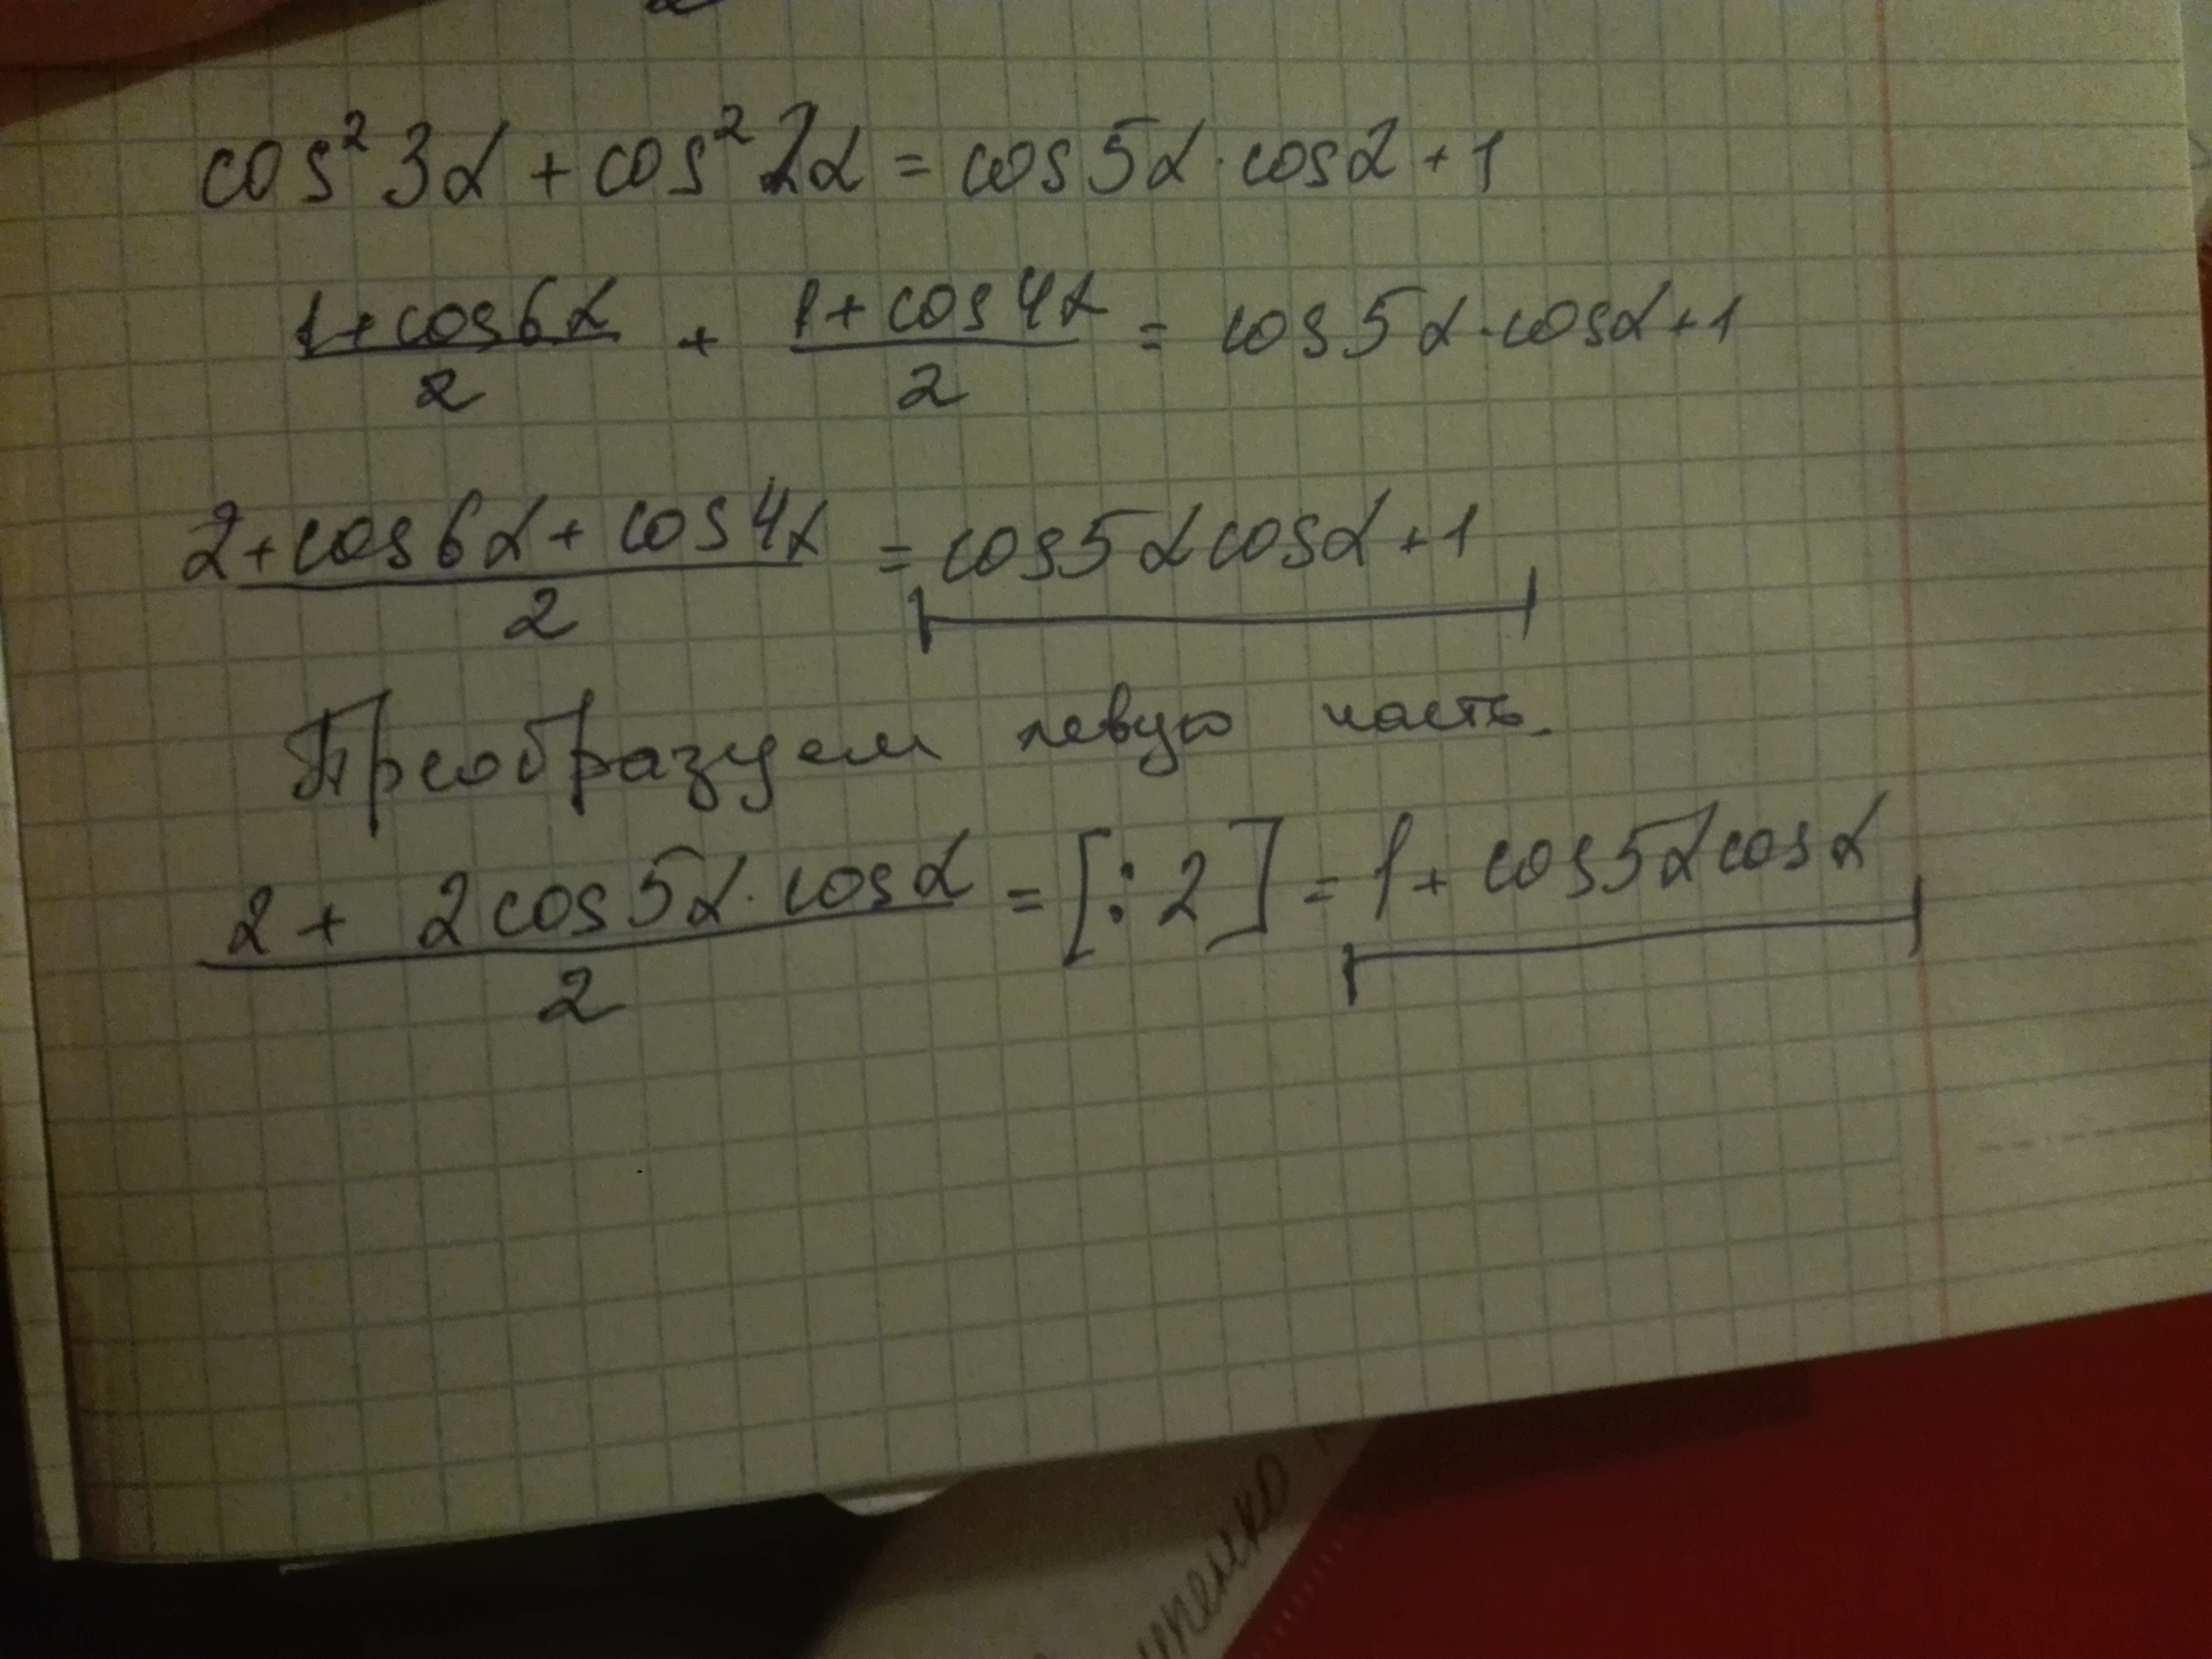 cos² 3α + cos² 2α = cos 5α · cos α + 1
(1 + cos 6α)/2 + (1 + cos 4α)/2 = cos 5α · cos α + 1
(2 + cos 6α + cos 4α)/2 = cos 5α cos α + 1
Преобразуем левую часть.
(2 + 2 cos 5α · cos α)/2 = [: 2] = 1 + cos 5α cos α